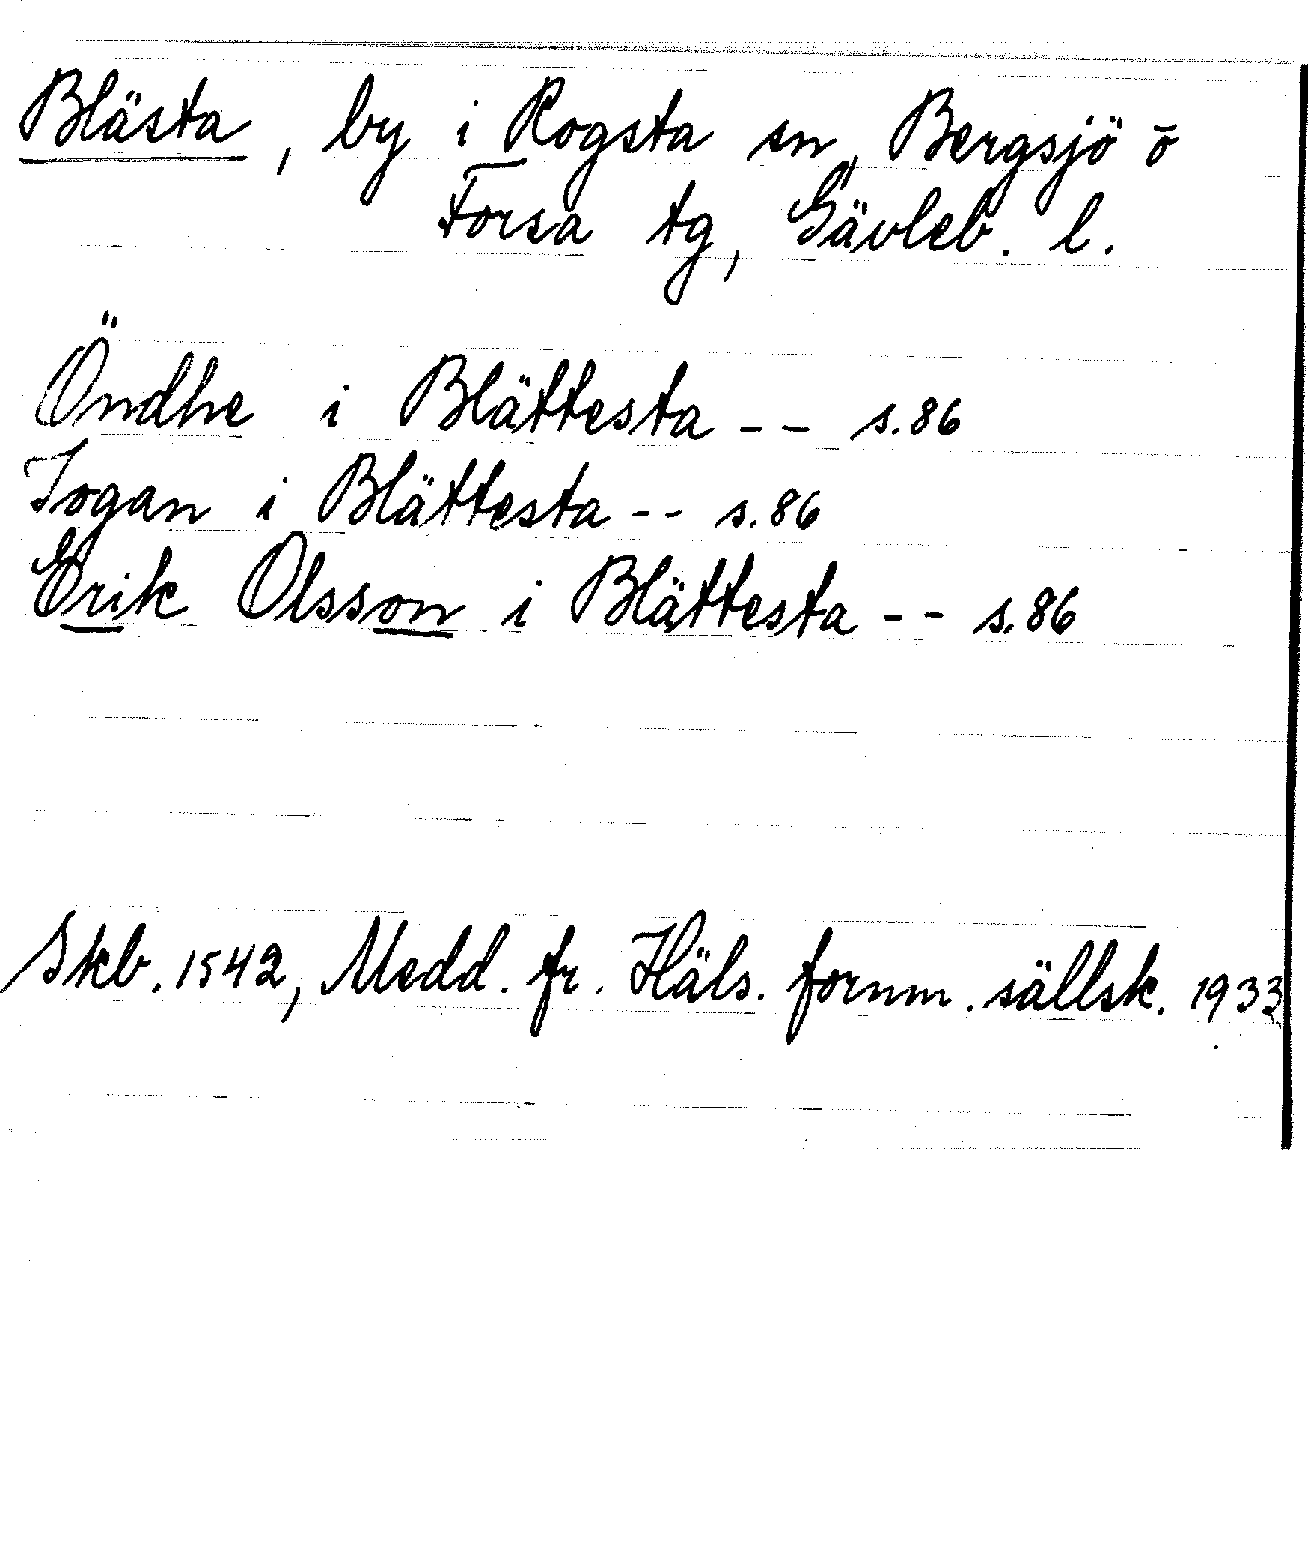 Blästa, by i Rogsta sn, Bergsjö o
Forsa tg, Gävleb. l.
Öndhe i Blättesta -- s.86
Jogan i Blättesta -- s.86
Erik Olsson i Blättesta -- s.86
Skb. 1542, Medd. fr. Häls. fornm. sällsk. 1933